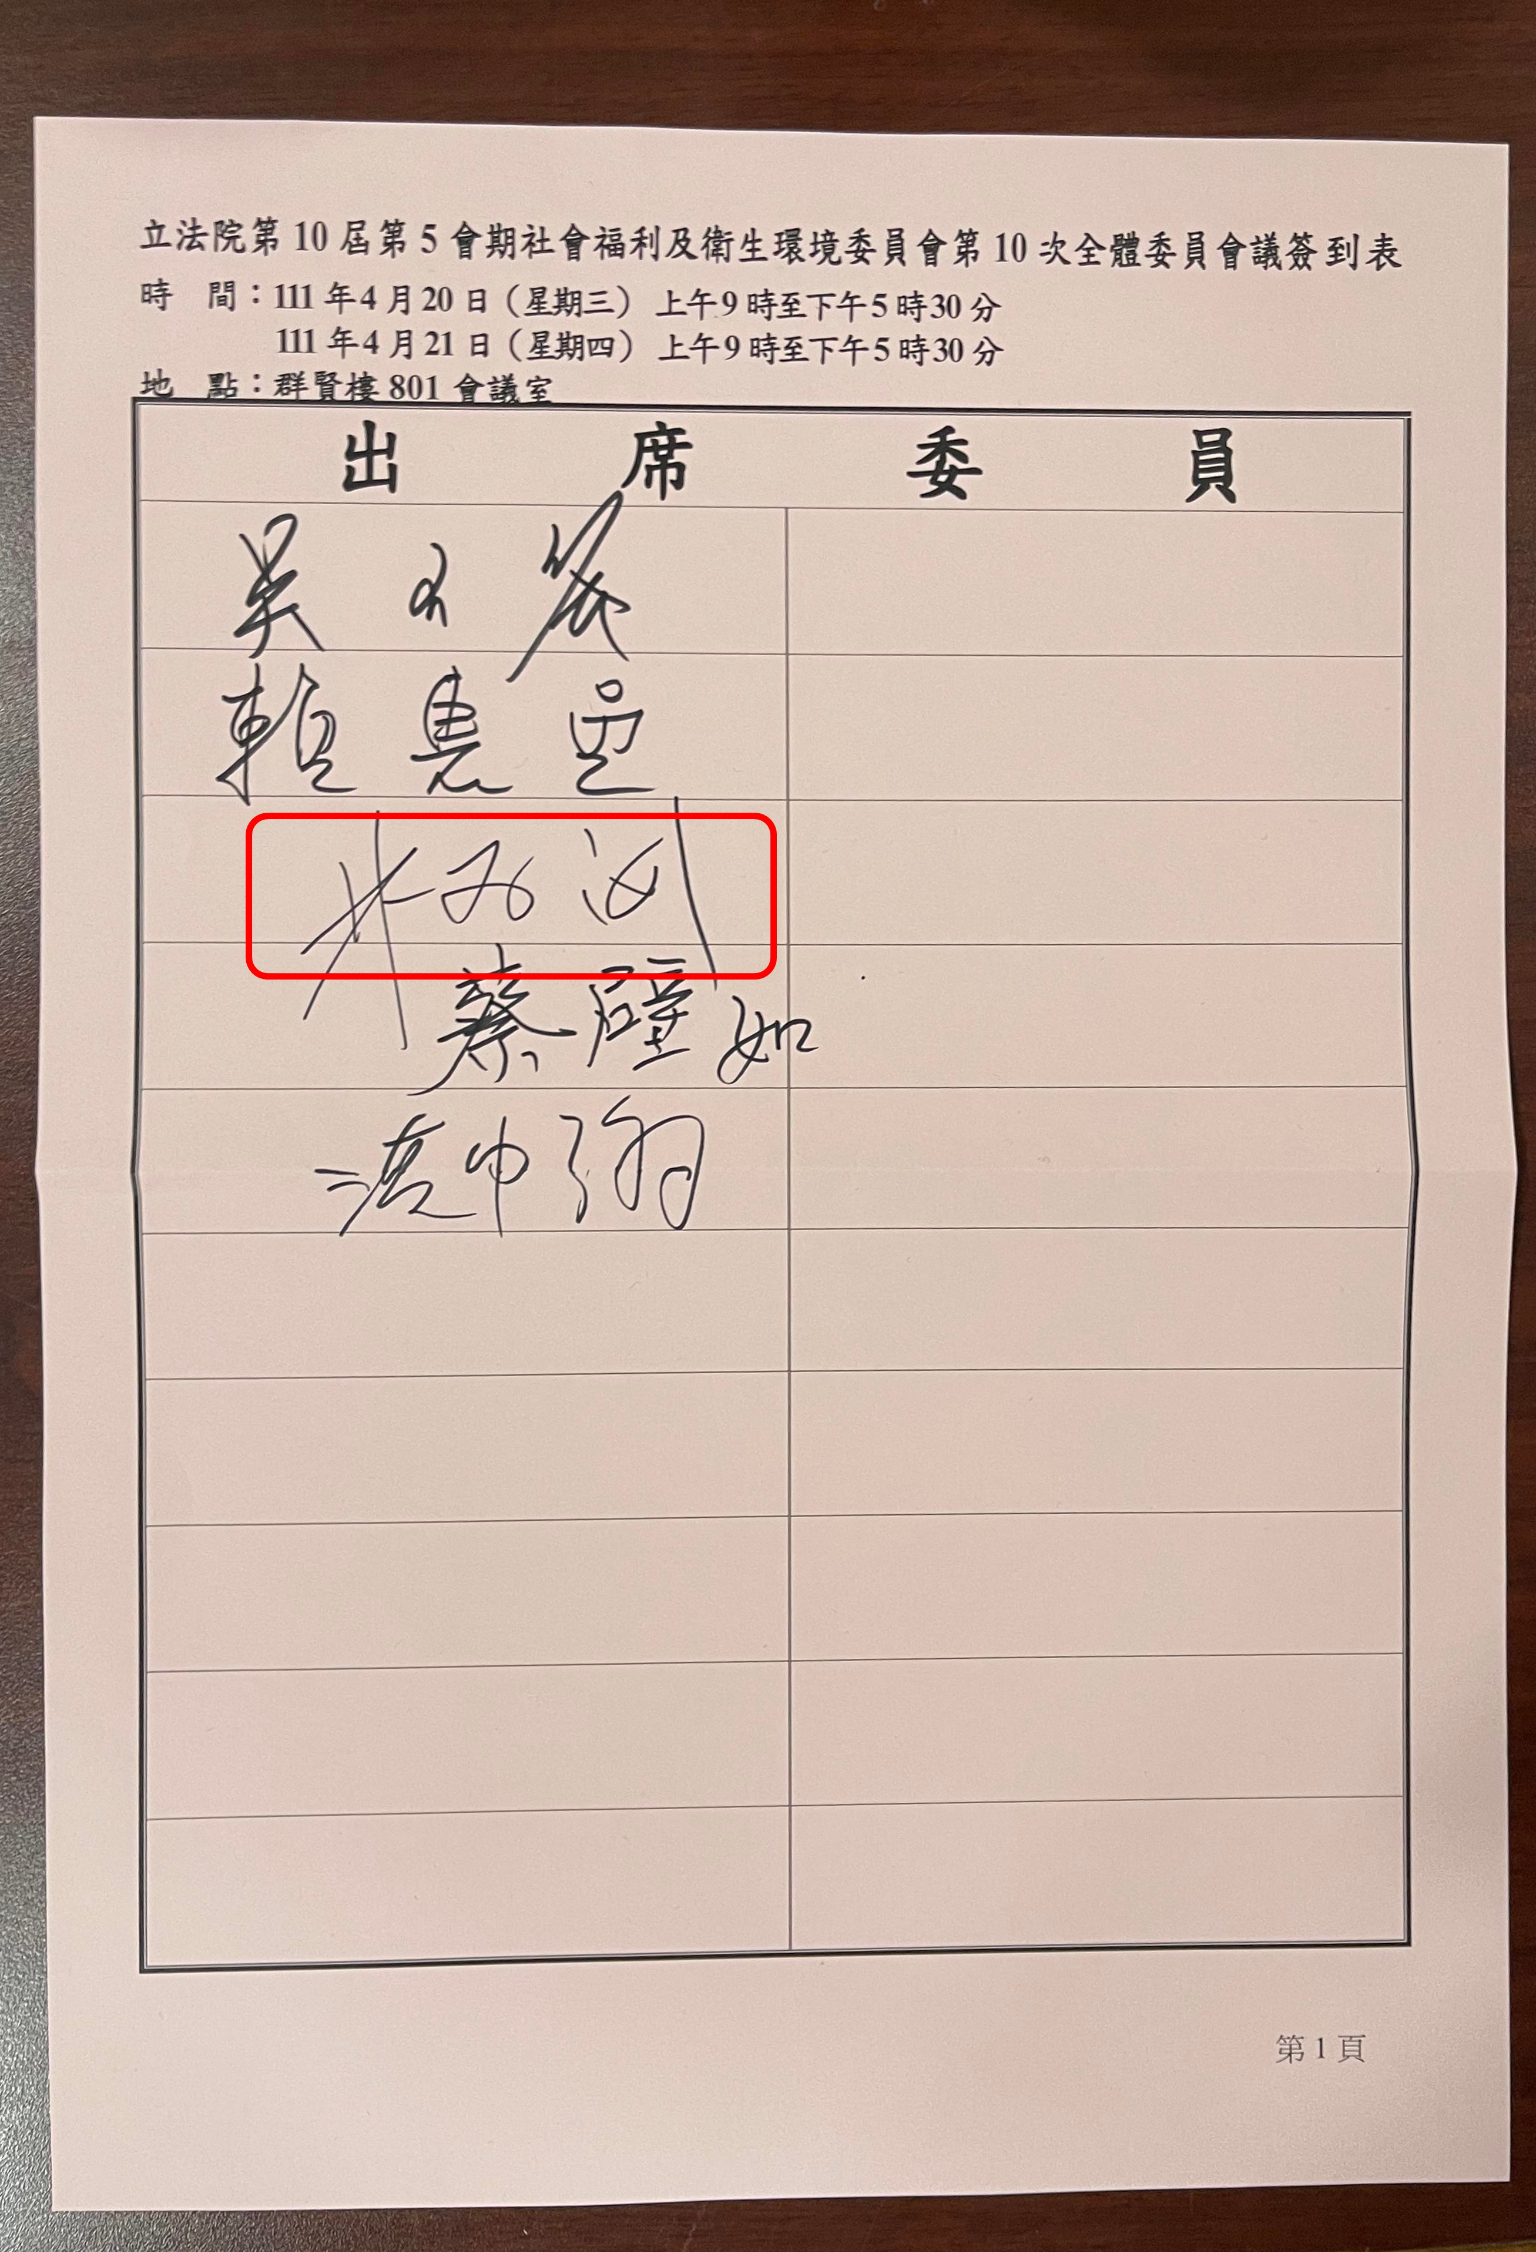 立法院第10屆第5會期社會福利及衛生環境委員會第10次全體委員會議簽到表
時 間：111年4月20日（星期三）上午9時至下午5時30分
111年4月21日（星期四）上午9時至下午5時30分
地 點：群賢樓801會議室
出 席 委 員
吳玉琴
賴惠員
蔡壁如
洪申翰
第1頁